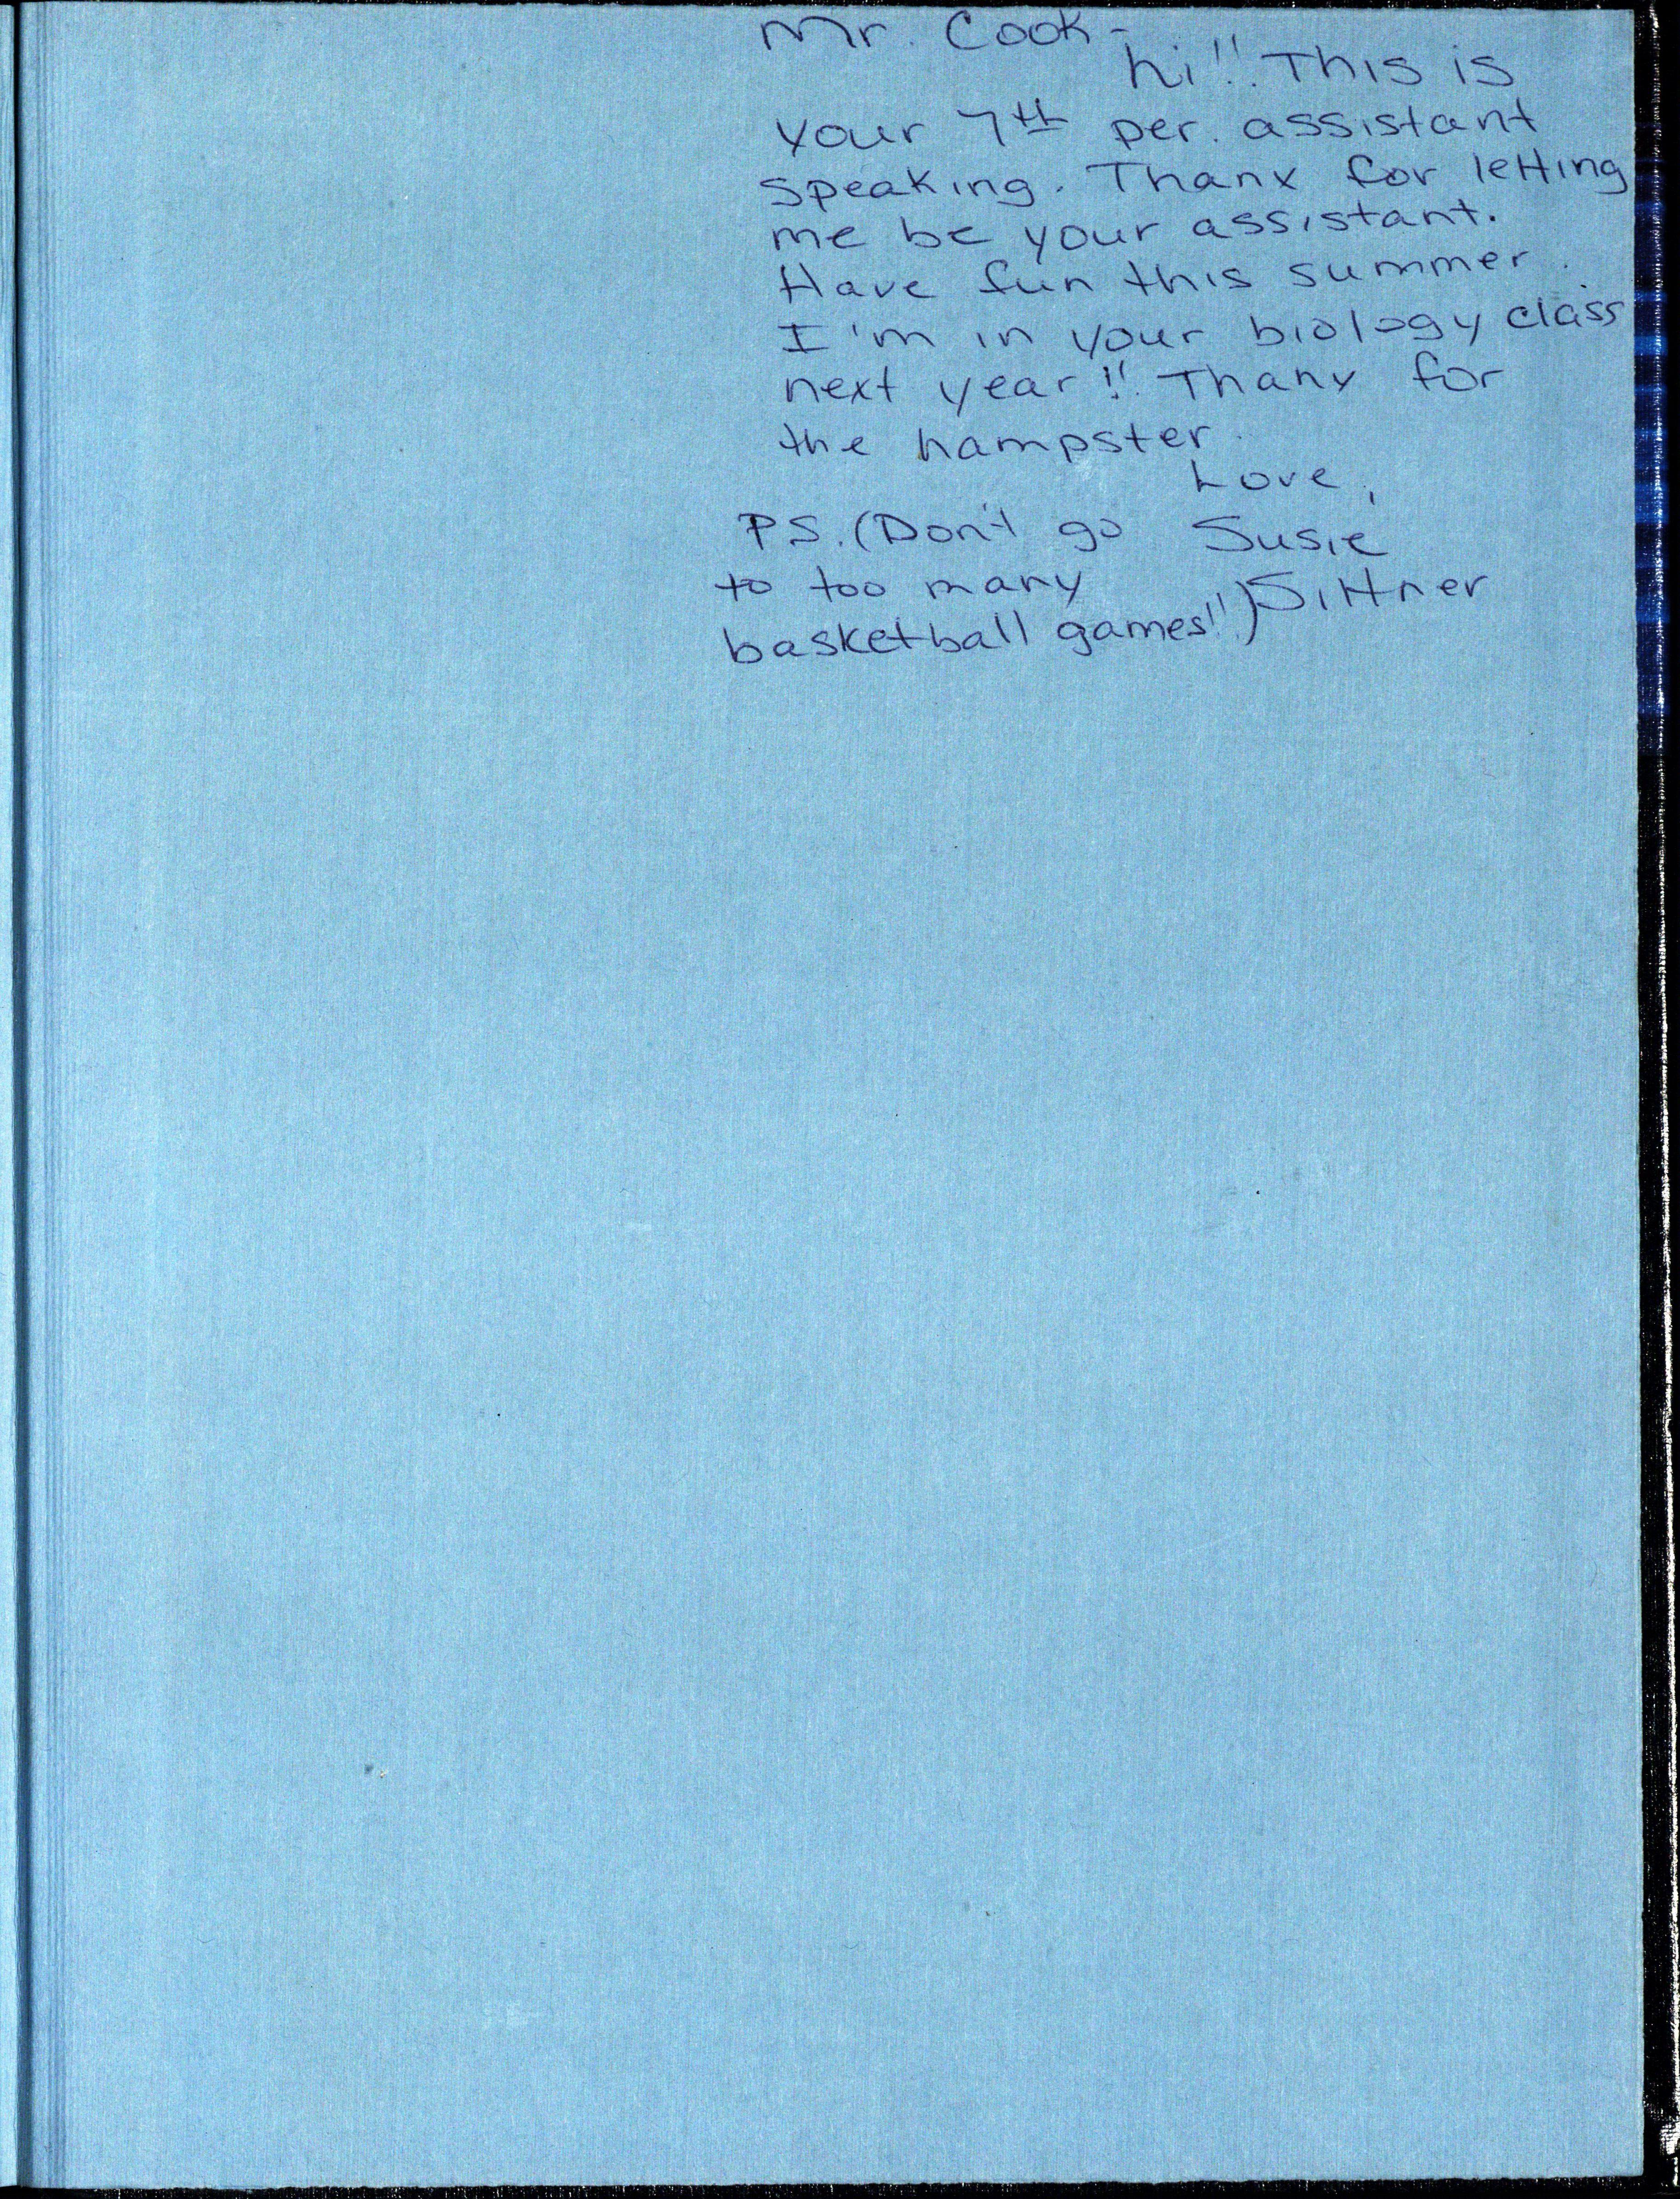 Mr. Cook -
hi!! This is
your 7th per. assistant
speaking. Thanx for letting
me be your assistant.
Have fun this summer.
I'm in your biology class
next year!! Thanx for
the hampster.
Love,
Susie
Sittner
P.S. (Don't go
to too many
basketball games!!)